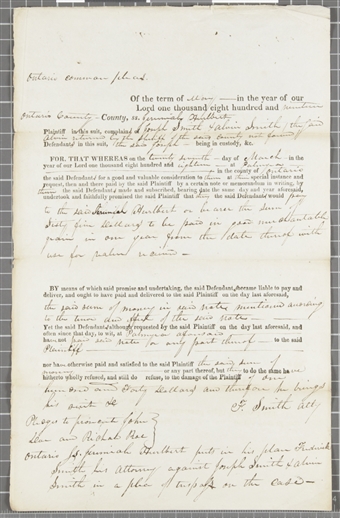 Ontario common pleas.
Of the term of May in the year of our
Lord one thousand eight hundred and nineteen
Ontario County County, ss. Jeremiah Hurlburt
Plaintiff in this suit, complains of Joseph Smith & Alvin Smith, they said
Alvin returned by the Sheriff of the said county not found
Defendants in this suit, the said Joseph being in custody, &c.
FOR, THAT WHEREAS on the twenty seventh day of March in the
year of our Lord one thousand eight hundred and eighteen at Palmyra
in the county of Ontario
the said Defendants for a good and valuable consideration to them at their special instance and
request, then and there paid by the said Plaintiff by a certain note or memorandum in writing, by
them the said Defendants made and subscribed, bearing date the same day and year aforesaid,
undertook and faithfully promised the said Plaintiff that they the said Defendants would pay
to the said Jeremiah Hurlburt or bearer the sum of
Sixty five dollars to be paid in good merchantable
grain in one year from the date thereof with
use for value received
BY means of which said promise and undertaking, the said Defendants became liable to pay and
deliver, and ought to have paid and delivered to the said Plaintiff on the day last aforesaid,
the said sum of money in said note mentioned according
to the tenor and effect of the said note
Yet the said Defendants although requested by the said Plaintiff on the day last aforesaid, and
often since that day, to wit, at Palmyra aforesaid
have not paid said note nor any part thereof to the said
Plaintiff
nor have otherwise paid and satisfied to the said Plaintiff the said sum of
money or any part thereof, but them to do the same have
hitherto wholly refused, and still do refuse, to the damage of the Plaintiff of one
hundred and forty dollars and therefore he brings
his suit &c
F. Smith Atty
Pledges to prosecute John
Doe and Richard Roe
Ontario ss. Jeremiah Hurlburt puts in his place Frederick
Smith his Attorney against Joseph Smith & Alvin
Smith in a plea of trespass on the case